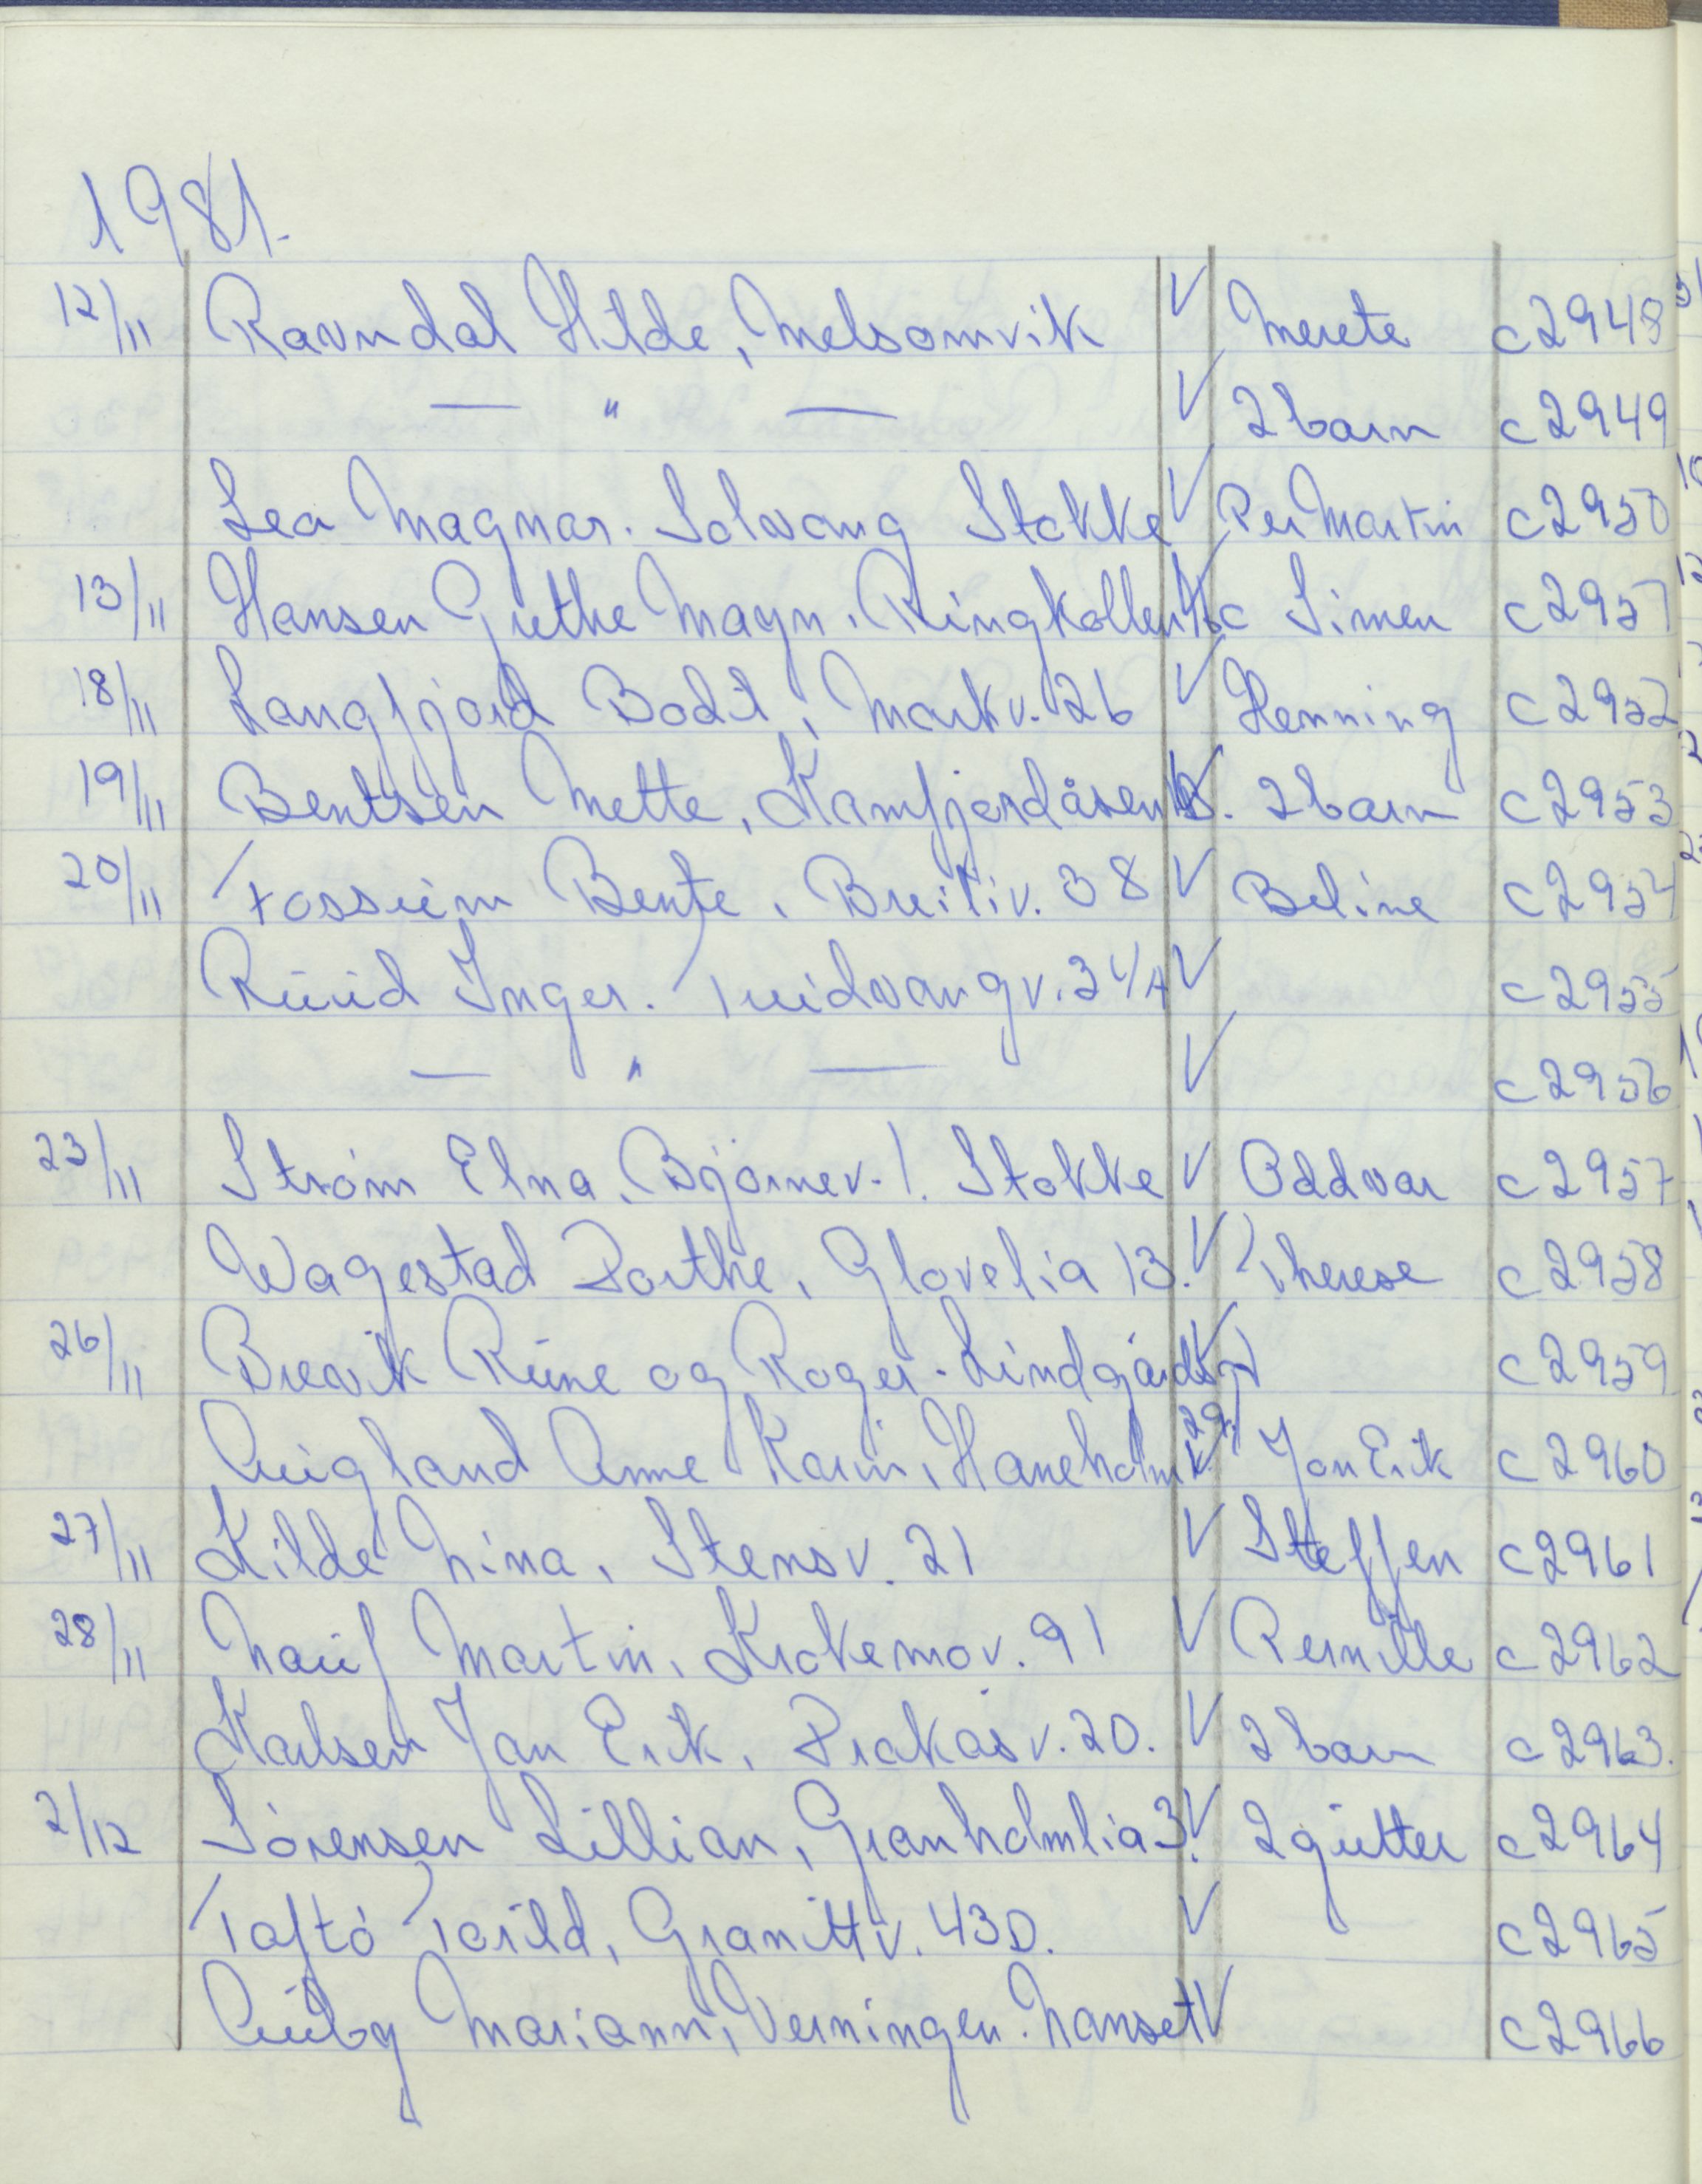 1981.
12/11 Ravndal Hilde, Melsomvik V Merete c2948
— " — V 2 barn c2949
Lea Magnar. Solvang Stokke V Per Martin c2950
13/11 Hansen Grethe Mayn. Ringkollen c Simen c2951
18/11 Langfjord Bodil, Markv. 26 V Henning c2952
19/11 Bentsen Mette, Kamfjordåsen V 2 barn c2953
20/11 Fossum Bente, Breiliv. 38 V Beline c2954
Ruud Inger. Tuidvangv. 34A V c2955
— " — V c2956
23/11 Strøm Elna, Bjørnev. 1. Stokke V Oddvar c2957
Wagestad Dorthe, Glovelia 13. V Therese c2958
26/11 Brevik Rune og Roger. Lindgårdsv V c2959
Augland Anne Karin, Haneholmv. 29 V Jon Erik c2960
27/11 Kilde Nina, Stensv. 21 V Steffen c2961
28/11 Nauf Martin, Krokemov. 91 V Pernille c2962
Karlsen Jan Erik, Prakåsv. 20. V 2 barn c2963.
2/12 Sørensen Lillian, Granholmlia 3. V 2 gutter c2964
Taftø Torild, Granittv. 43D. V — c2965
Auby Mariann, Verningen. Nanset V c2966